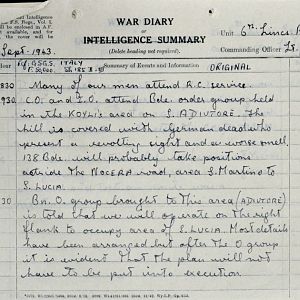 WAR DIARY
or
INTELLIGENCE SUMMARY
(Delete heading not required).
Unit 6th Lincs
Commanding Officer
Sept. 1943.
Ref. G.S.G.S. ITALY
Summary of Events and Information
ORIGINAL
830 Many of our men attend R.C. service.
930 C.O. and I.O. attend Bde. order group held
in the KOYLI's area on S. ADIUTORE. The
hill is covered with German dead who
present a revolting sight and a worse smell.
138 Bde. will probably take positions
astride the NOCERA road, area S. Martino to
S. LUCIA.
30 Bn. O group brought to this area (ADIUTORE)
is told that we will operate on the right
flank to occupy area of S. LUCIA. Most details
have been arranged but after the O group
it is evident that the plan will not
have to be put into execution.